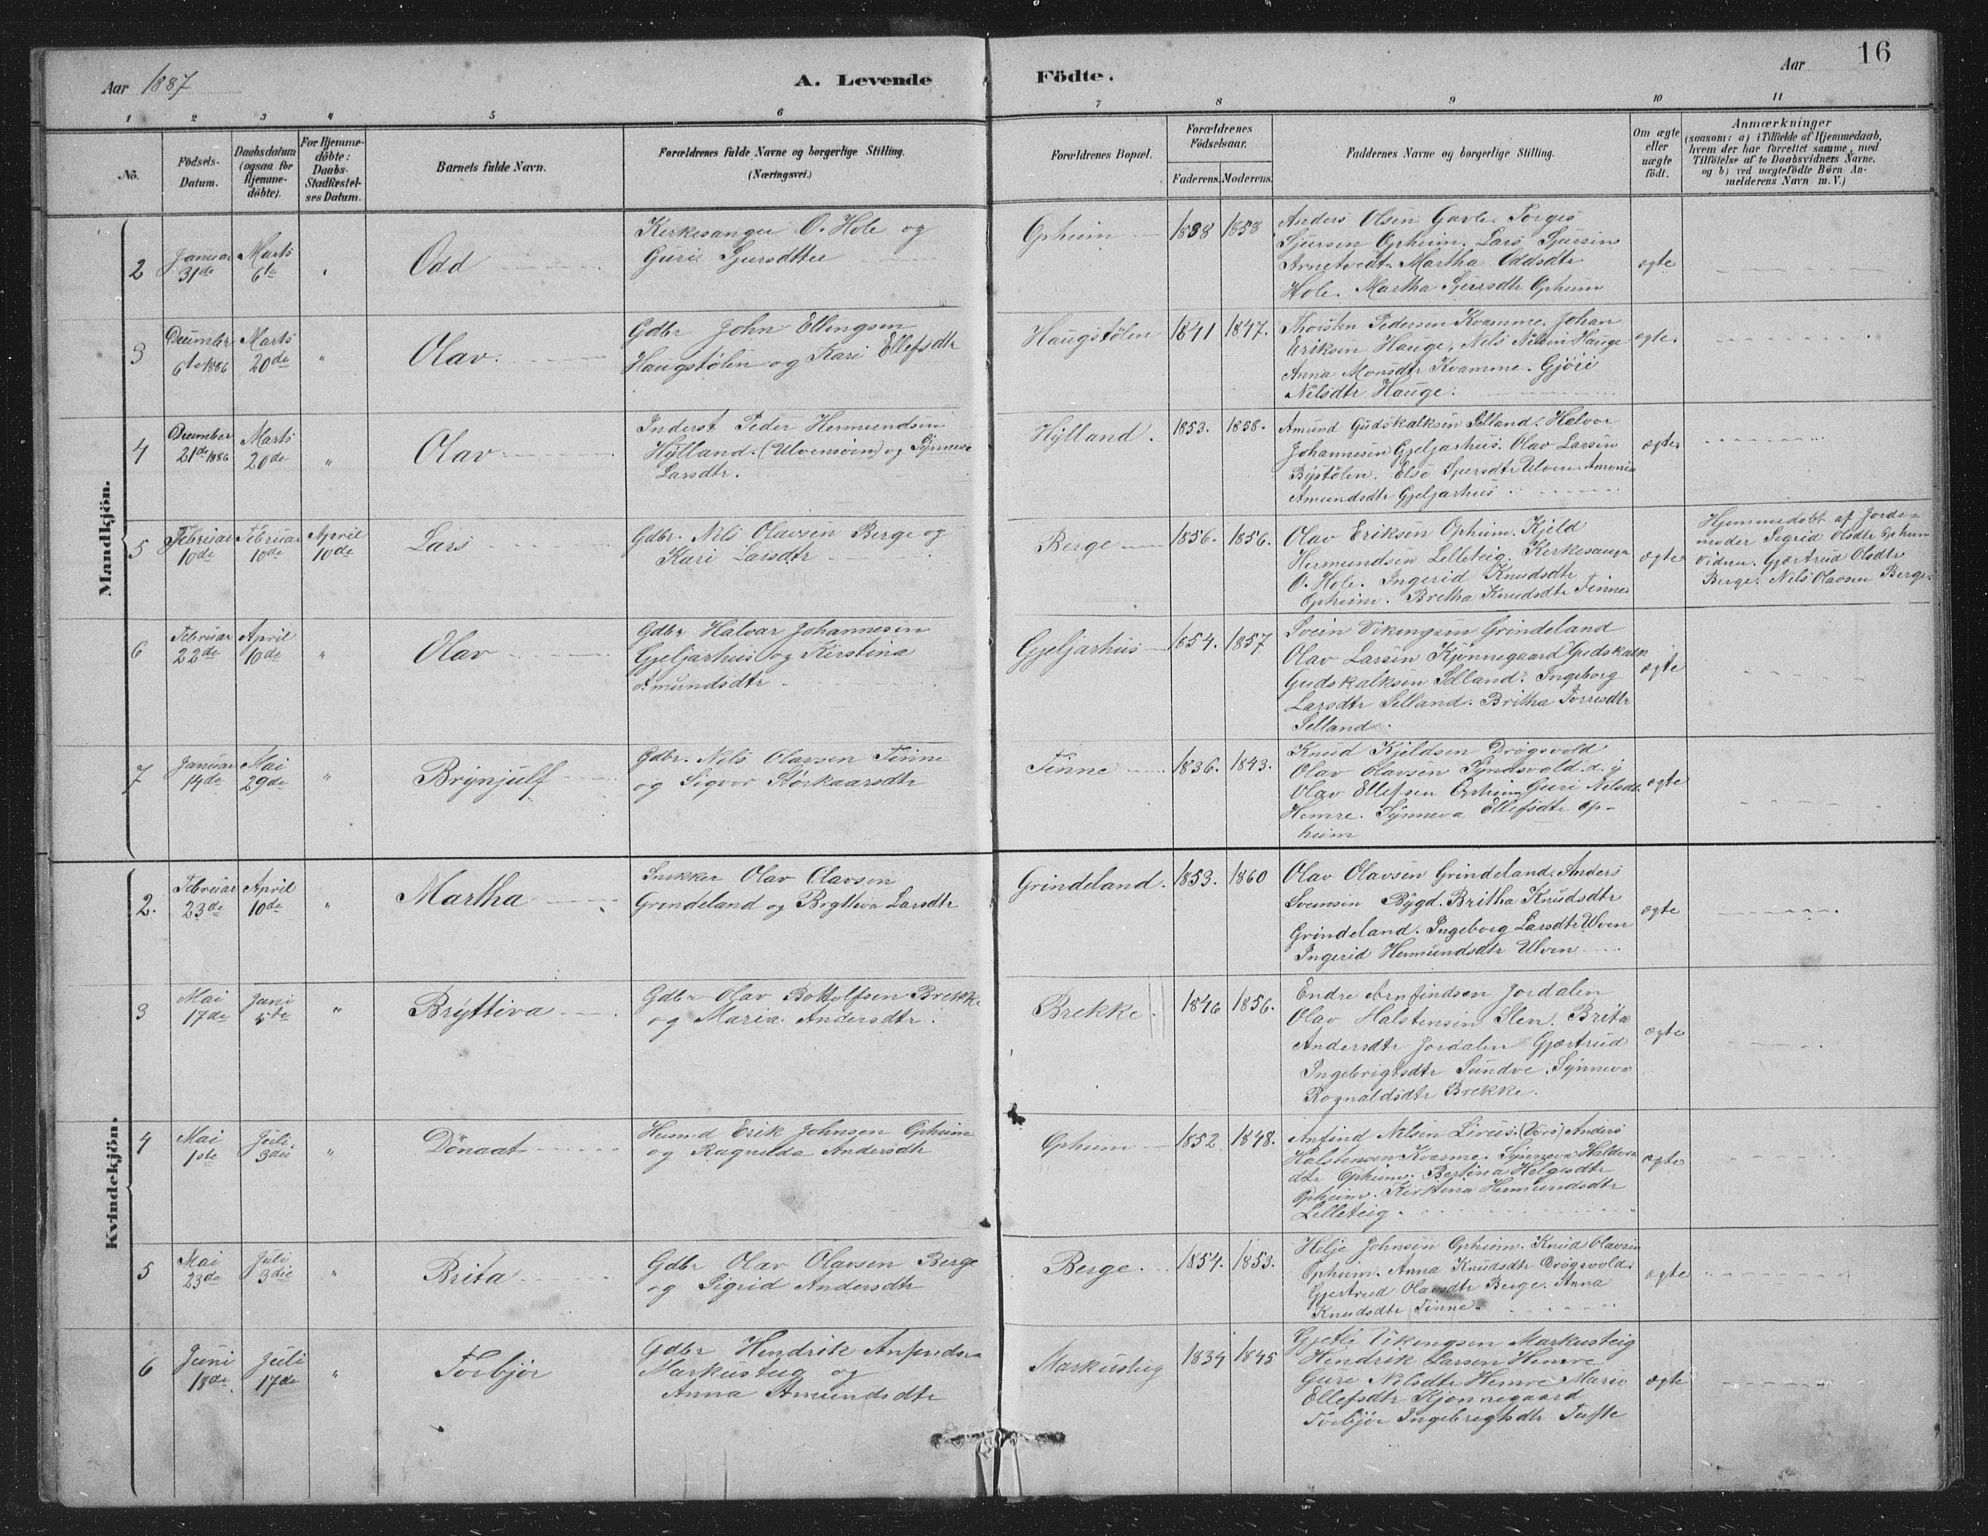 Aar 1887
A. Levende
Födte.
Aar
16
1 2 3 4 5 6 7 8 9 10 11
No.
Födsels-
Datum.
Daabsdatum
(ogsaa for
Hjemme-
döbte).
For Hjemme-
döbte:
Daabs-
Stadfæstel-
ses Datum.
Barnets fulde Navn.
Forældrenes fulde Navne og borgerlige Stilling.
(Næringsvei.)
Forældrenes Bopæl.
Forældrenes
Födselsaar.
Faderens. Moderens.
Faddernes Navne og borgerlige Stilling.
Om ægte
eller
uægte
födt.
Anmærkninger
(saasom: a) i Tilfælde af Hjemmedaab,
hvem der har forrettet samme, med
Tilföielse af to Daabsvidners Navne,
og b) ved uægtefödte Börn An-
melderens Navn m. V.)
Mandkjön.
2
Januar
31de
Marts
6te
"
Odd
Kirkesanger O. Hole og
Guri Sjursdtter
Opheim
1838
1858
Anders Olsen Gavle. Torges
Sjursen Opheim. Lars Sjursen
Arnetvedt. Martha Oddsdtr
Hole. Martha Sjursdtr Opheim
ægte
3
December
6te 1886
Marts
20de
"
Olav.
Gdbr John Ellingsen
Haugstölen og Kari Ellefsdtr
Haugstölen
1841
1847.
Thorsten Pedersen Kvamme. Johan
Eriksen Hauge. Nils Nilsen Hauge
Anna Monsdtr Kvamme. Gjöri
Nilsdtr Hauge.
ægte.
4
December
21de 1886
Marts
20de
"
Olav
Inderst Peder Hermundsen
Hylland. (Ulvensöien) og Synneva
Larsdtr.
Hylland.
1853.
1858.
Amund Gudskalksen Selland. Halvor
Johannesen Gjeljarhus. Olav Larsen
Bystölen. Else Sjursdtr Ulven.
Amundsdtr Gjeljarhus
ægte
5
Februar
10de
Februar
10de
April
10de
Lars
Gdbr. Nils Olavsen Berge og
Kari Larsdtr
Berge
1856.
1856.
Olav Eriksen Opheim. Kjeld
Hermundsen Lelleteig. Kirkesanger
O. Hole. Ingerid Knudsdtr
Opheim. Bretha Knudsdtr Finne
ægte
Hjemmedöbt af Jorde-
moder Sigrid Olsdtr Opheim
Vidner. Gjærtrud Olsdtr
Berge. Nils Olavsen Berge.
6
Februar
22de
April
10de
"
Olav
Gdbr Halvar Johannesen
Gjeljarhus og Kirstina
Amundsdtr
Gjeljarhus
1854.
1857
Svein Vikingsen Grindeland
Olav Larsen Kjönnegaard Gudskalk
Gudskalksen Selland. Ingeborg
Larsdtr Selland. Britha Torresdtr
Selland.
ægte
7
Januar
14de
Mai
29de
"
Brynjulf
Gdbr. Nils Olavsen Finne
og Sigvor Störkaarsdtr
Finne
1836.
1843.
Knud Kjeldsen Drögsvold
Olav Olavsen Syndsvold d. y
Olav Ellefsen Opheim Guri Nilsdtr
Hemre. Synneva Ellefsdtr Op-
heim
ægte
Kvindekjön.
2.
Februar
23de
April
10de
"
Martha
Snekker Olav Olavsen
Grindeland og Bryttva Larsdtr
Grindeland.
1853.
1860
Olav Olavsen Grindeland. Anders
Svensen Bygd. Britha Knudsdtr
Grindeland. Ingeborg Larsdtr Ulven
Ingerid Hermundsdtr Ulven
ægte
3
Mai
17de
Juni
5te
"
Bryttiva
Gdbr Olav Bottolfsen Brekke
og Maria Andersdtr.
Brekke.
1846
1856.
Endre Arnfindsen Jordalen
Olav Halstensen Slen. Brita
Andersdtr Jordalen Gjærtrud
Ingebrigtsdtr Sundve. Synneva
Rognaldsdtr Brekke.
ægte
4
Mai
1ste
Juli
3die
"
Dönaat
Husmd Erik Johnsen Opheim
og Ragnilda Andersdtr
Opheim
1852
1848.
Anfind Nilsen Lirus. (Vors) Anders
Halstensen Kvarme. Synneva Haldor
dtr Opheim. Bertina Helgesdtr
Opheim. Kirstina Hermundsdtr
Lelleteig.
ægte
5
Mai
23de
Juli
3die
"
Brita
Gdbr Olav Olavsen Berge
og Sigrid Andersdtr
Berge.
1854.
1853.
Helje Johnsen Opheim. Knud Olavsen
Opheim. Anna Knudsdtr Drögsvold.
Gjertrud Olavsdtr Berge. Anna
Knudsdtr Finne.
ægte
6
Juni
13de.
Juli
17de
"
Torbjör
Gdbr Hendrik Anfindsen
Markusteig og
Anna Amundsdtr
Markusteig
1834
1845
Gjetle Vikingsen Markusteig
Hendrik Larsen Hemre
Guri Nilsdtr Hemre Mari
Ellefsdtr Kjönnegaard
Torbjör Ingebrigtsdtr Tufte
ægte